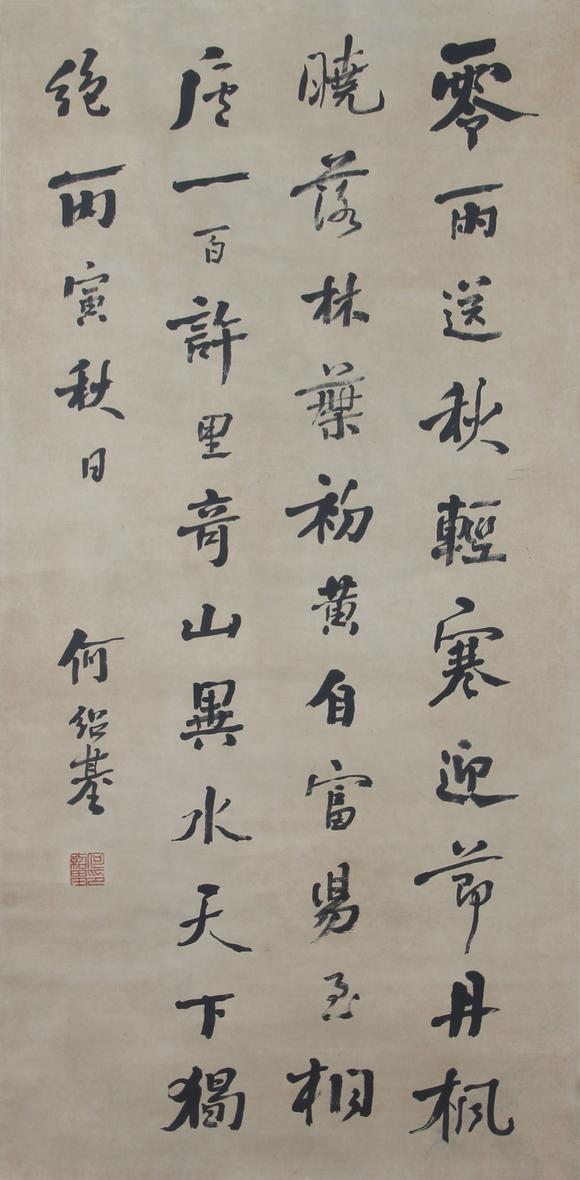 零雨送秋輕寒迎節丹楓
曉落林葉初黃自富昜至桐
庐一百許里竒山異水天下獨
絕丙寅秋日 何紹基
何紹基印